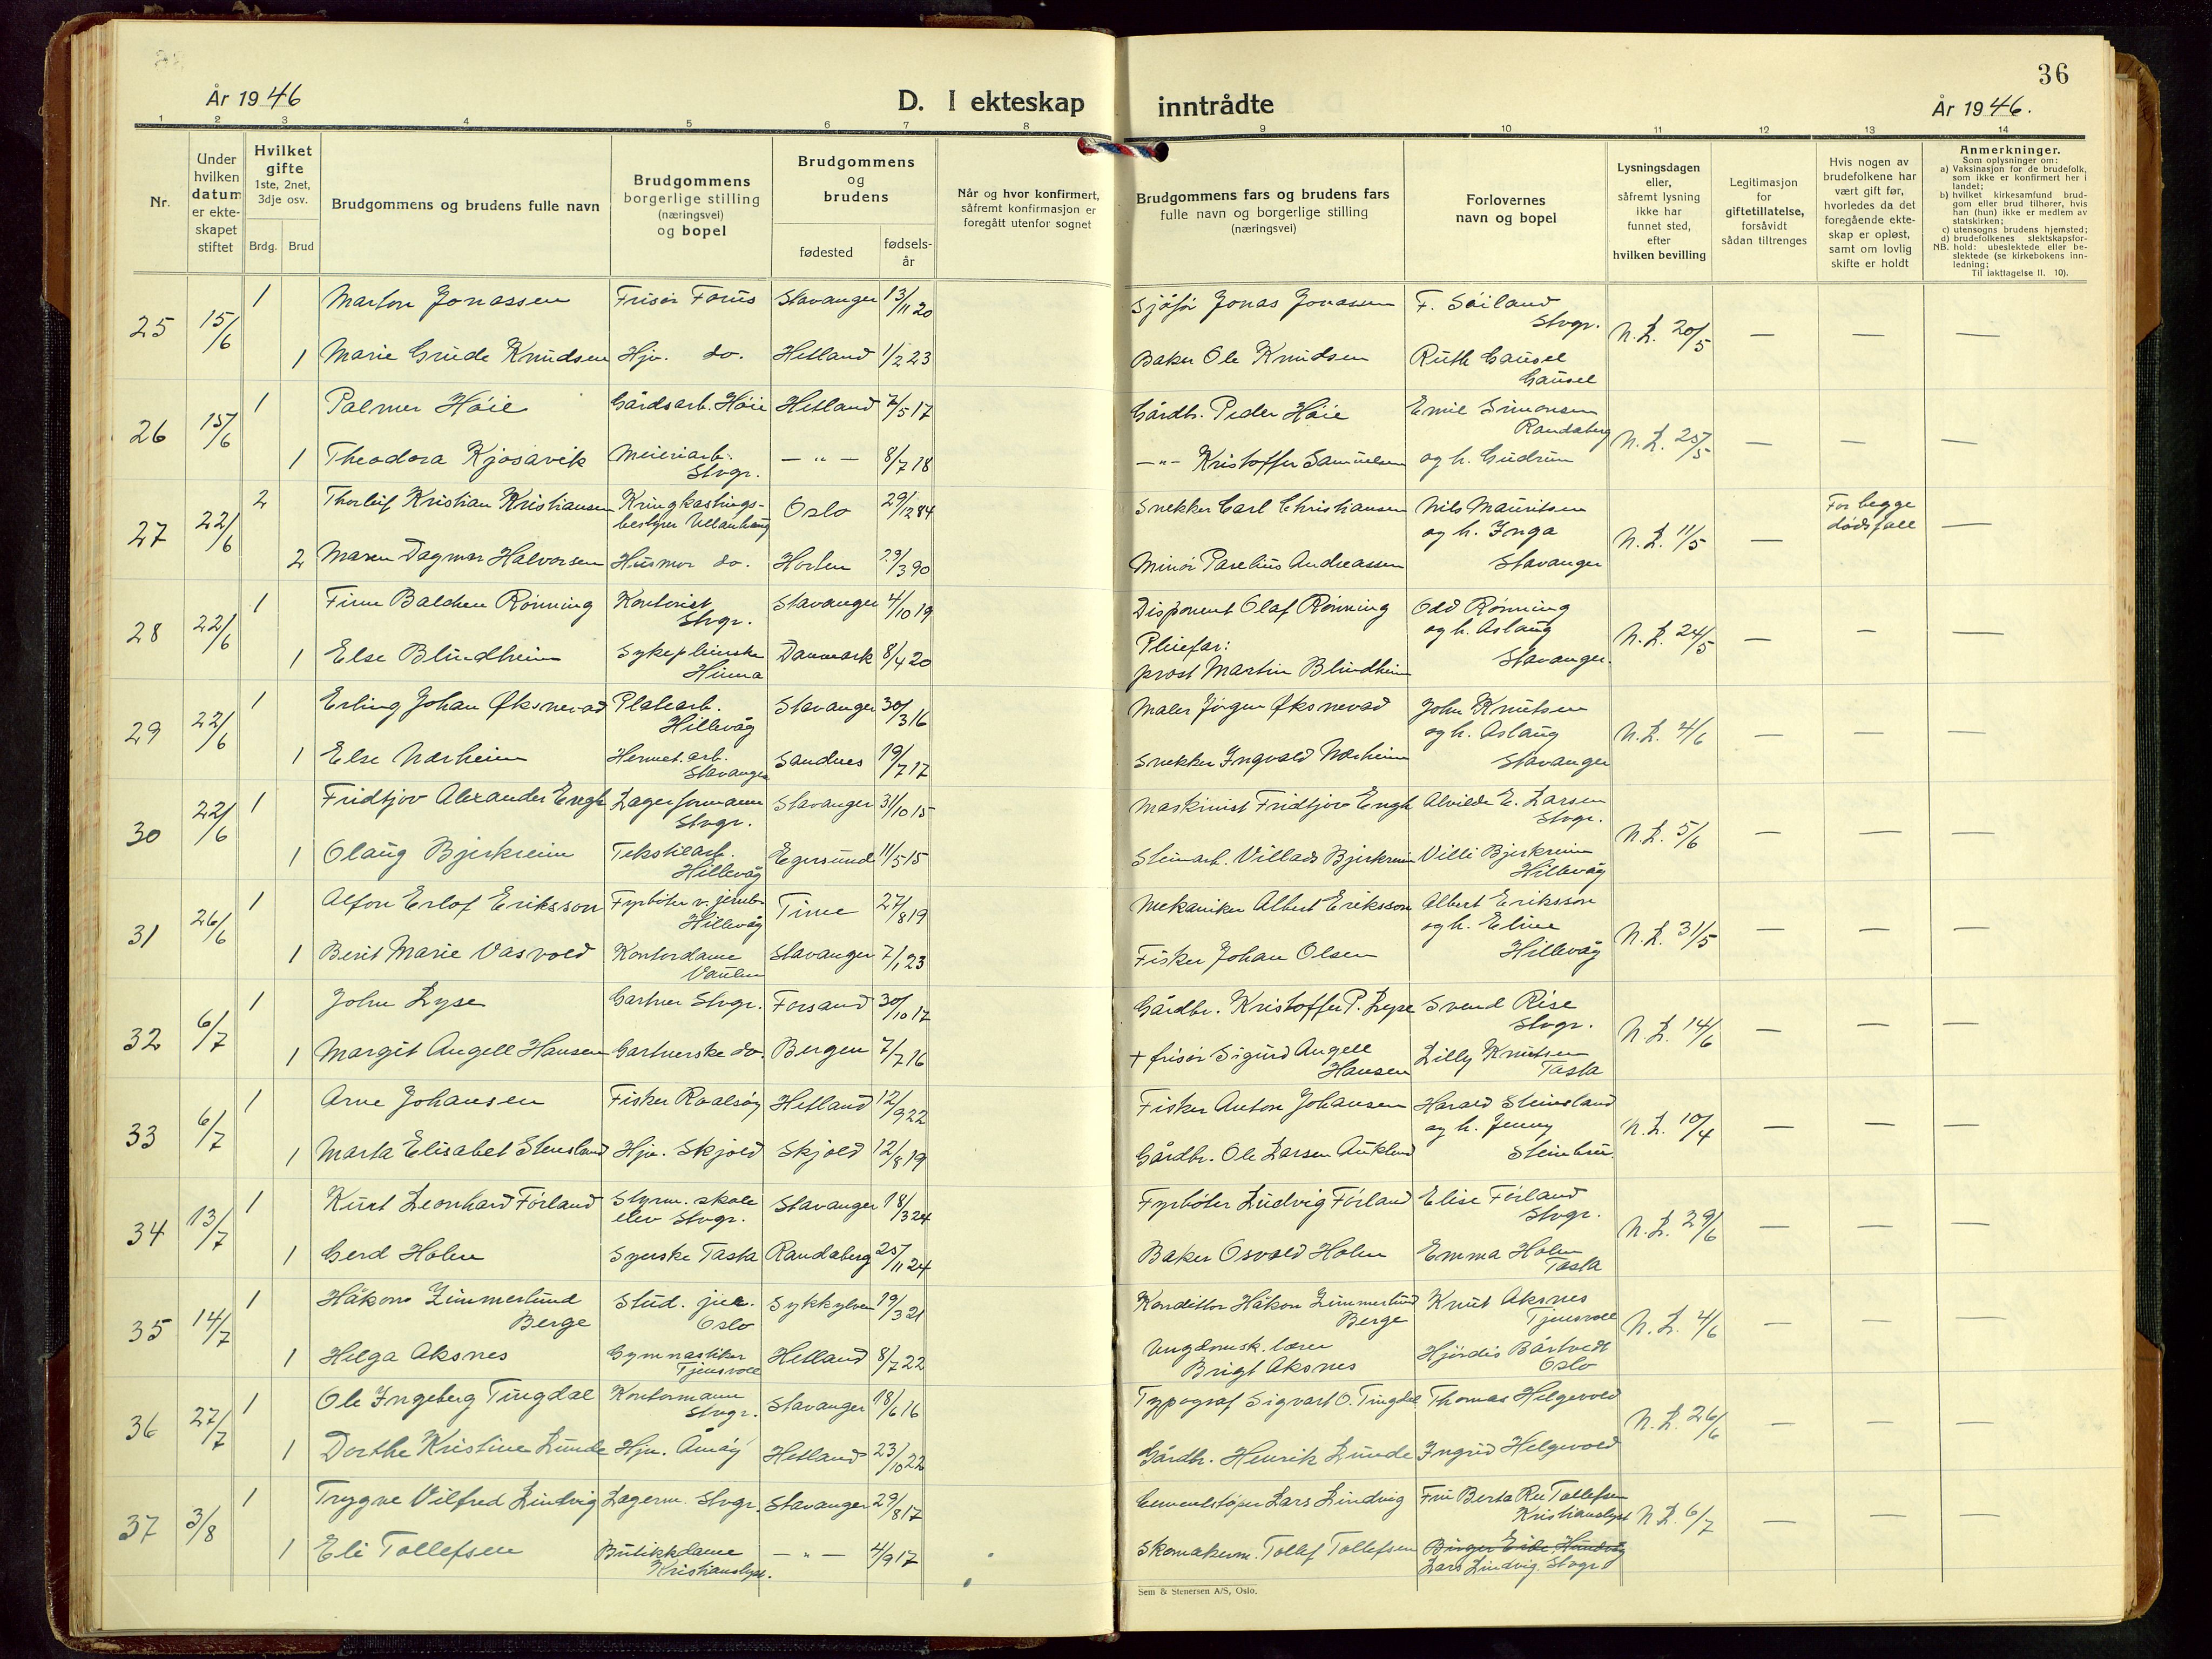 36
År 1946
D. I ekteskap inntrådte
År 1946.
1 2 3 4 5 6 7 8 9 10 11 12 13 14
Nr.
Under hvilken datum er ekteskapet stiftet
Hvilket gifte 1ste, 2net, 3dje osv.
Brdg. Brud
Brudgommens og brudens fulle navn
Brudgommens borgerlige stilling (næringsvei) og bopel
Brudgommens og brudens
fødested
fødselsår
Når og hvor konfirmert, såfremt konfirmasjon er foregått utenfor sognet
Brudgommens fars og brudens fars fulle navn og borgerlige stilling (næringsvei)
Forlovernes navn og bopel
Lysningsdagen eller, såfremt lysning ikke har funnet sted, efter hvilken bevilling
Legitimasjon for giftetillatelse, forsåvidt sådan tiltrenges
Hvis nogen av brudefolkene har vært gift før, hvorledes da det foregående ekteskap er opløst, samt om lovlig skifte er holdt
Anmerkninger.
Som oplysninger om:
a) Vaksinasjon for de brudefolk, som ikke er konfirmert her i landet;
b) hvilket kirkesamfund brudgom eller brud tilhører, hvis han (hun) ikke er medlem av statskirken;
c) utensogns brudens hjemsted;
d) brudefolkenes slektskapsforhold: ubeslektede eller beslektede (se kirkebokens innledning:
NB.
Til iakttagelse II. 10).
25 15/6 1 Marton Jonassen Frisør Forus Stavanger 13/11 20 Sjåfør Jonas Jonassen F. Söiland Stvgr. N.L. 20/5 — — —
1 Marie Grude Knudsen Hjv. do. Hetland 1/2 23 Baker Ole Knudsen Ruth Gausel Gausel
26 15/6 1 Palmer Höie Gårdsarb. Höie Hetland 7/5 17 Gårdbr. Peder Höie Emil Simonsen Randaberg N.L. 25/5 — — —
1 Theodora Kjosavik Meieriarb. Stvgr. — " — 8/7 18 — " — Kristoffer Samuelsen og h. Gudrun
27 22/6 2 Thorleif Kristian Kristiansen Kringkastings-bestyrer Ullanhaug Oslo 29/12 84 Snekker Carl Christiansen Nils Mauritsen og h. Inga Stavanger N.L. 11/5 — For begge dödsfall —
2 Maren Dagmar Halvorsen Husmor do. Horten 29/3 90 Minör Paselius Andreassen
28 22/6 1 Finn Balchen Rönning Kontorist Stvgr. Stavanger 4/10 19 Disponent Olaf Rönning Odd Rönning og h. Aslaug Stavanger. N.L. 24/5 — — —
1 Else Blindheim Sykepleierske Hinna Danmark 8/4 20 Pleiefar: prost Martin Blindheim
29 22/6 1 Erling Johan Øksnevad Platearb. Hillevåg Stavanger 30/3 16 Maler Jörgen Øksnevad John Knutsen og h. Aslaug Stavanger N.L. 4/6 — — —
1 Else Nærheim Hermet.arb. Stavanger Sandnes 19/7 17 Snekker Ingvald Nærheim
30 22/6 1 Fridtjov Alexander Engh Lagerformann Stvgr. Stavanger 31/10 15 Maskinist Fridtjov Engh Alvilde E. Larsen Stvgr. N.L. 5/6 — — —
1 Olaug Bjerkreim Tekstilarb. Hillevåg Egersund 11/5 15 Steinarb. Villads Bjerkreim Villi Bjerkreim Hillevåg
31 26/6 1 Alfon Erlof Eriksson Fyrböter v. jernb. Hillevåg Time 27/8 19 Mekaniker Albert Eriksson Albert Eriksson og h. Eline Hillevåg N.L. 31/5 — — —
1 Berit Marie Vasvold Kontordame Vaulen Stavanger 7/1 23 Fisker Johan Olsen
32 6/7 1 John Lyse Gartner Stvgr. Forsand 30/10 17 Gårdbr. Kristoffer P. Lyse Svend Rise Stvgr. N.L. 14/6 — — —
1 Margit Angell Hansen Gartnerske do. Bergen 7/7 16 + frisör Sigurd Angell Hansen Lilly Knutsen Tasta
33 6/7 1 Arne Johansen Fisker Roalsöy Hetland 12/9 22 Fisker Anton Johansen Harald Steinsland og h. Jenny Steinbru. N.L. 10/4 — — —
1 Marta Elisabet Stensland Hjv. Skjold Skjold 12/8 19 Gårdbr. Ole Larsen Aukland
34 13/7 1 Kurt Leonhard Förland Styrm. skole elev Stvgr. Stavanger 18/3 24 Fyrböter Ludvig Förland Elise Förland Stvgr. N.L. 29/6 — — —
1 Gerd Holm Syerske Tasta Randaberg 25/11 24 Baker Osvald Holm Emma Holm Tasta
35 14/7 1 Håkon Zimmerlund Berge Stud. jur. Oslo Sykkylven 19/3 21 Konditor Håkon Zimmerlund Berge Knut Aksnes Tjensvoll N.L. 4/6 — — —
1 Helga Aksnes Gymnastiker Tjensvoll Hetland 8/7 22 Ungdomsk. lærer Brigt Aksnes Hjördis Bårtvedt Oslo
36 27/7 1 Ole Ingeberg Tingdal Kontormann Stvgr. Stavanger 18/6 16 Typograf Sigvart O. Tingdal Thomas Helgevold N.L. 26/6 — — —
1 Dorthe Kristine Lunde Hjv. Åmöy Hetland 23/10 22 Gårdbr. Henrik Lunde Ingrid Helgevold
37 3/8 1 Trygve Vilfred Lindvig Lagerm. Stvgr. Stavanger 29/8 17 Cementstöper Lars Lindvig Fru Berta Ree Tollefsen Kristianslyst N.L. 6/7 — — —
1 Eli Tollefsen Butikkdame Kristianslyst. — " — 4/9 17 Skomakerm. Tollef Tollefsen Birger Eide Hundvåg Lars Lindvig Stvgr.
Sem & Stenersen A/S, Oslo.